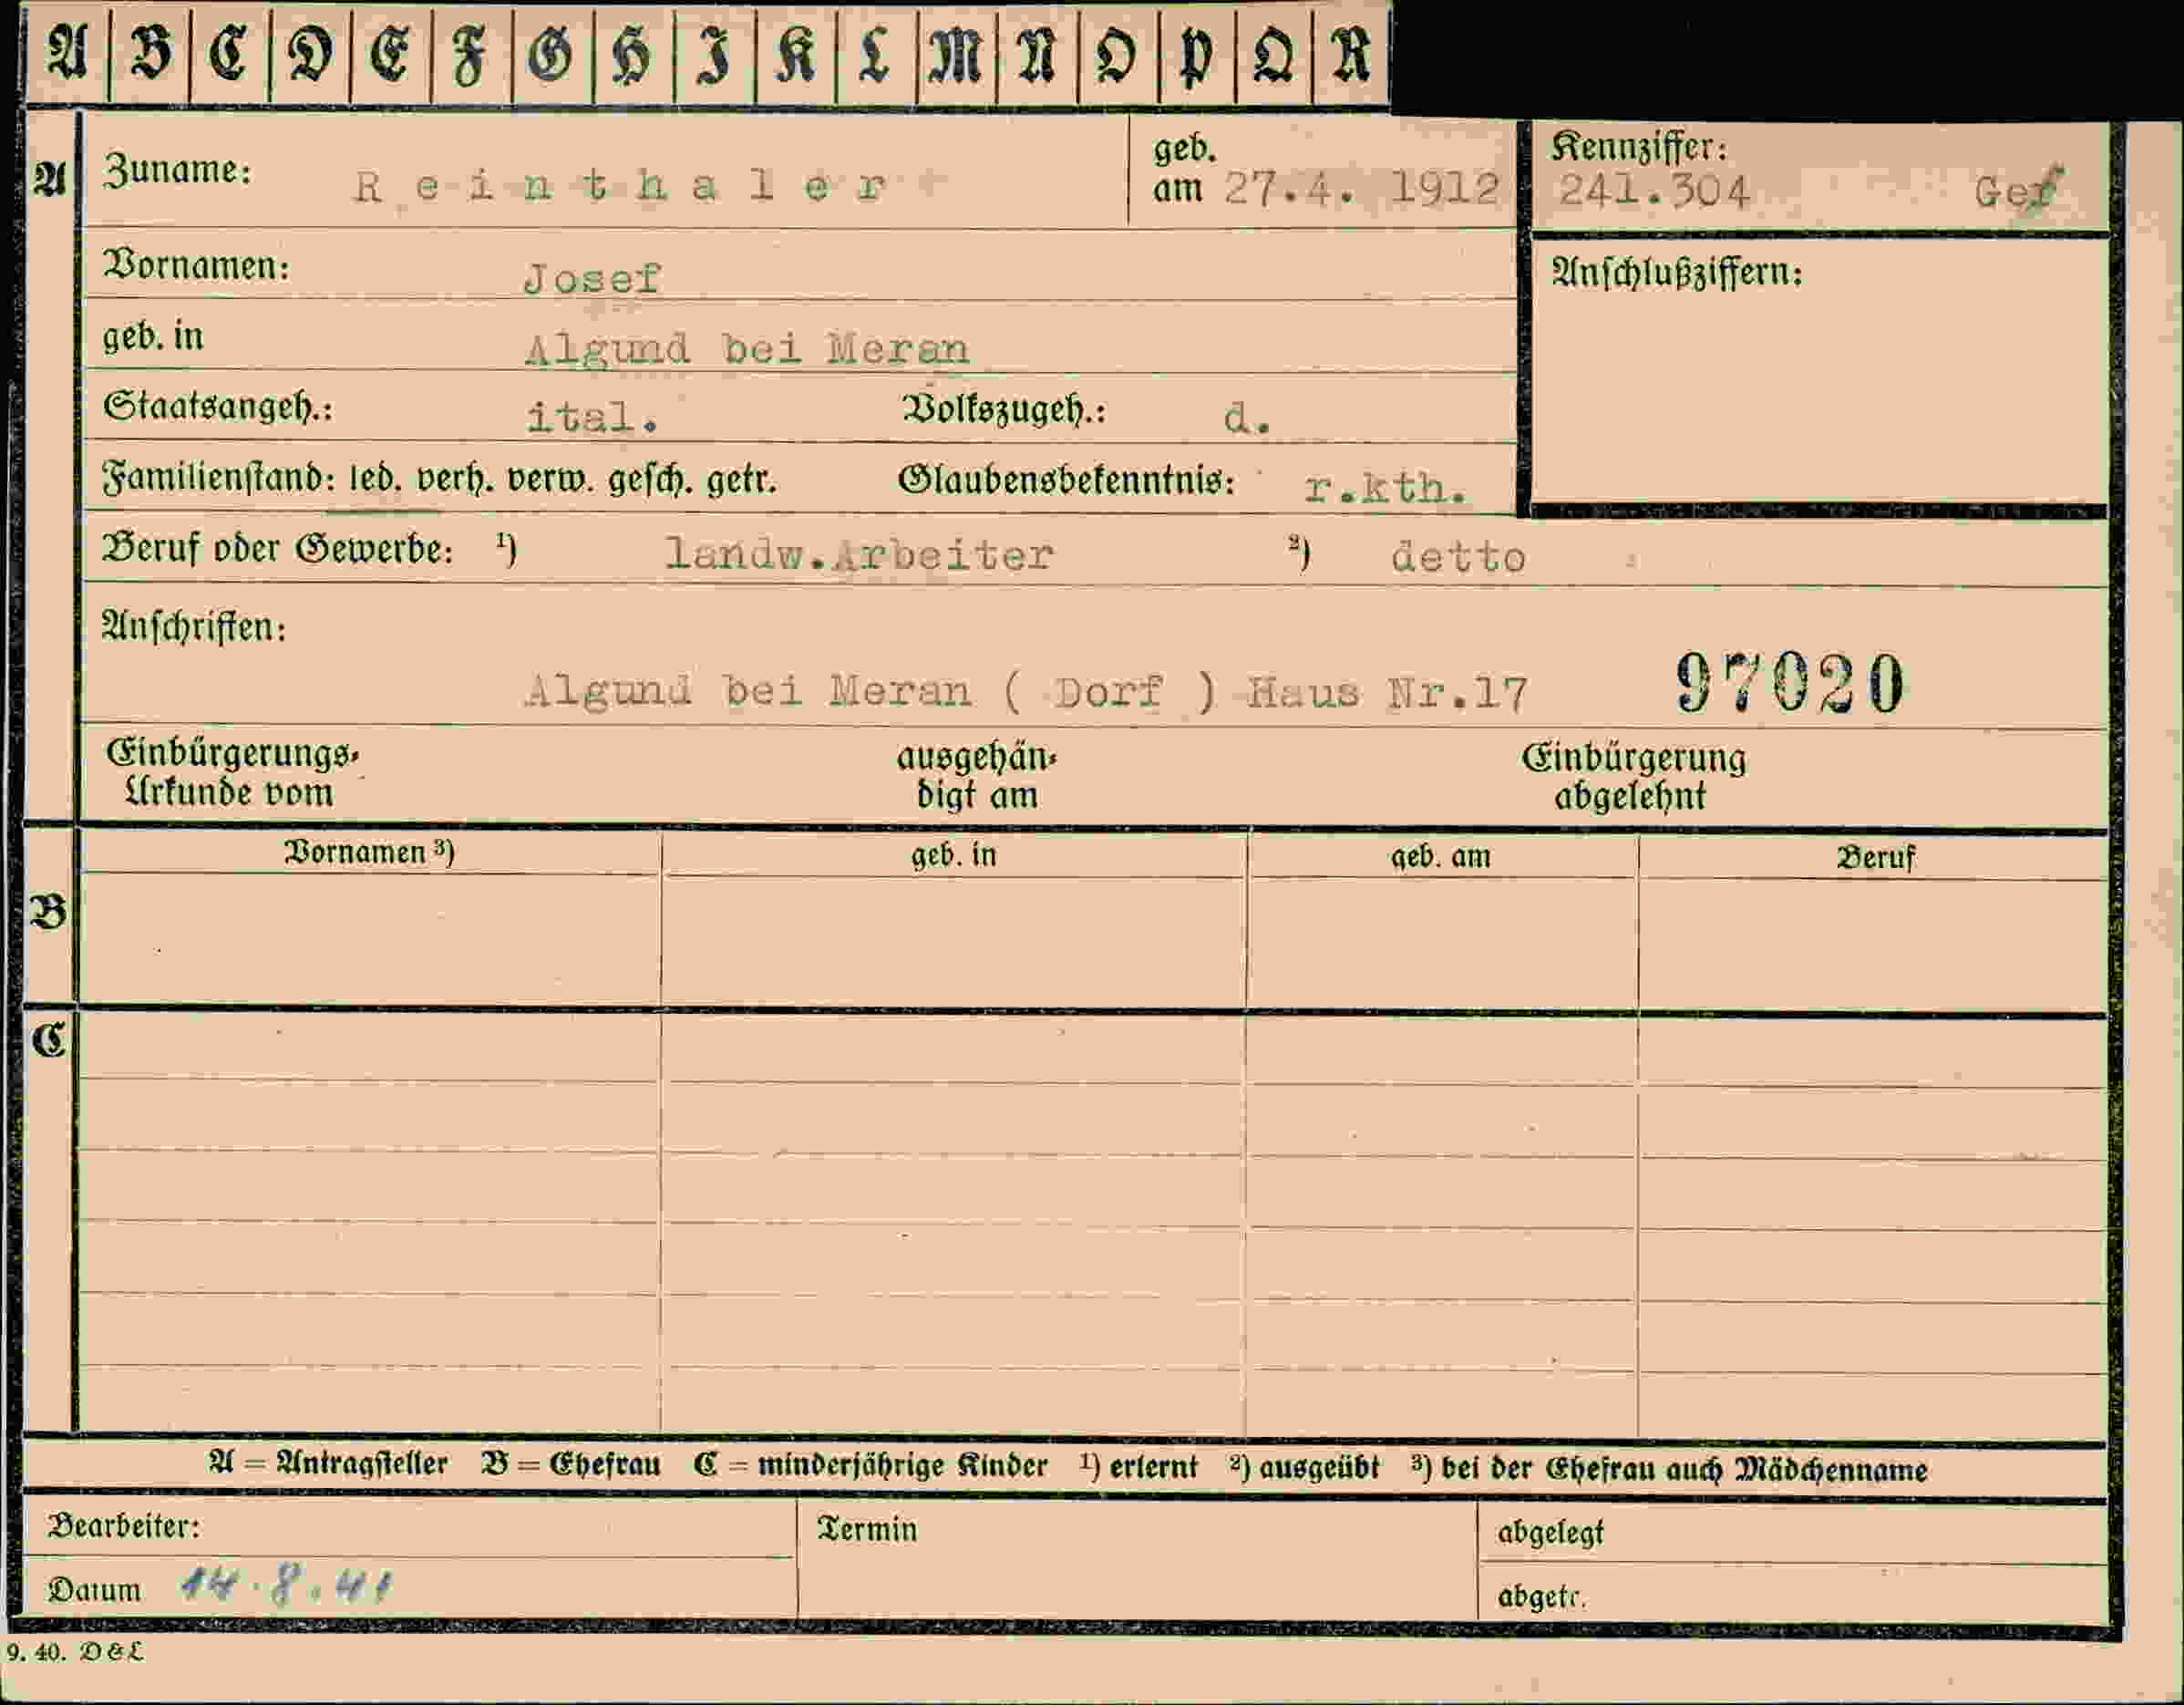 A B C D E F G H I K L M N O P Q R
A Zuname: Reinthaler geb. am 27.4. 1912 Kennziffer: 241.304 Gef
Vornamen: Josef Anschlußziffern:
geb. in Algund bei Meran
Staatsangeh.: ital. Volkszugeh.: d.
Familienstand: led. verh. verw. gesch. getr. Glaubensbekenntnis: r.kth.
Beruf oder Gewerbe: ¹) landw.Arbeiter ²) detto
Anschriften:
Algund bei Meran ( Dorf ) Haus Nr.17 97020
Einbürgerungs- ausgehän- Einbürgerung
Urkunde vom digt am abgelehnt
Vornamen ³) geb. in geb. am Beruf
B
C
A = Antragsteller B = Ehefrau C = minderjährige Kinder ¹) erlernt ²) ausgeübt ³) bei der Ehefrau auch Mädchenname
Bearbeiter: Termin abgelegt
Datum 14.8.41 abgetr.
9. 40. D & L